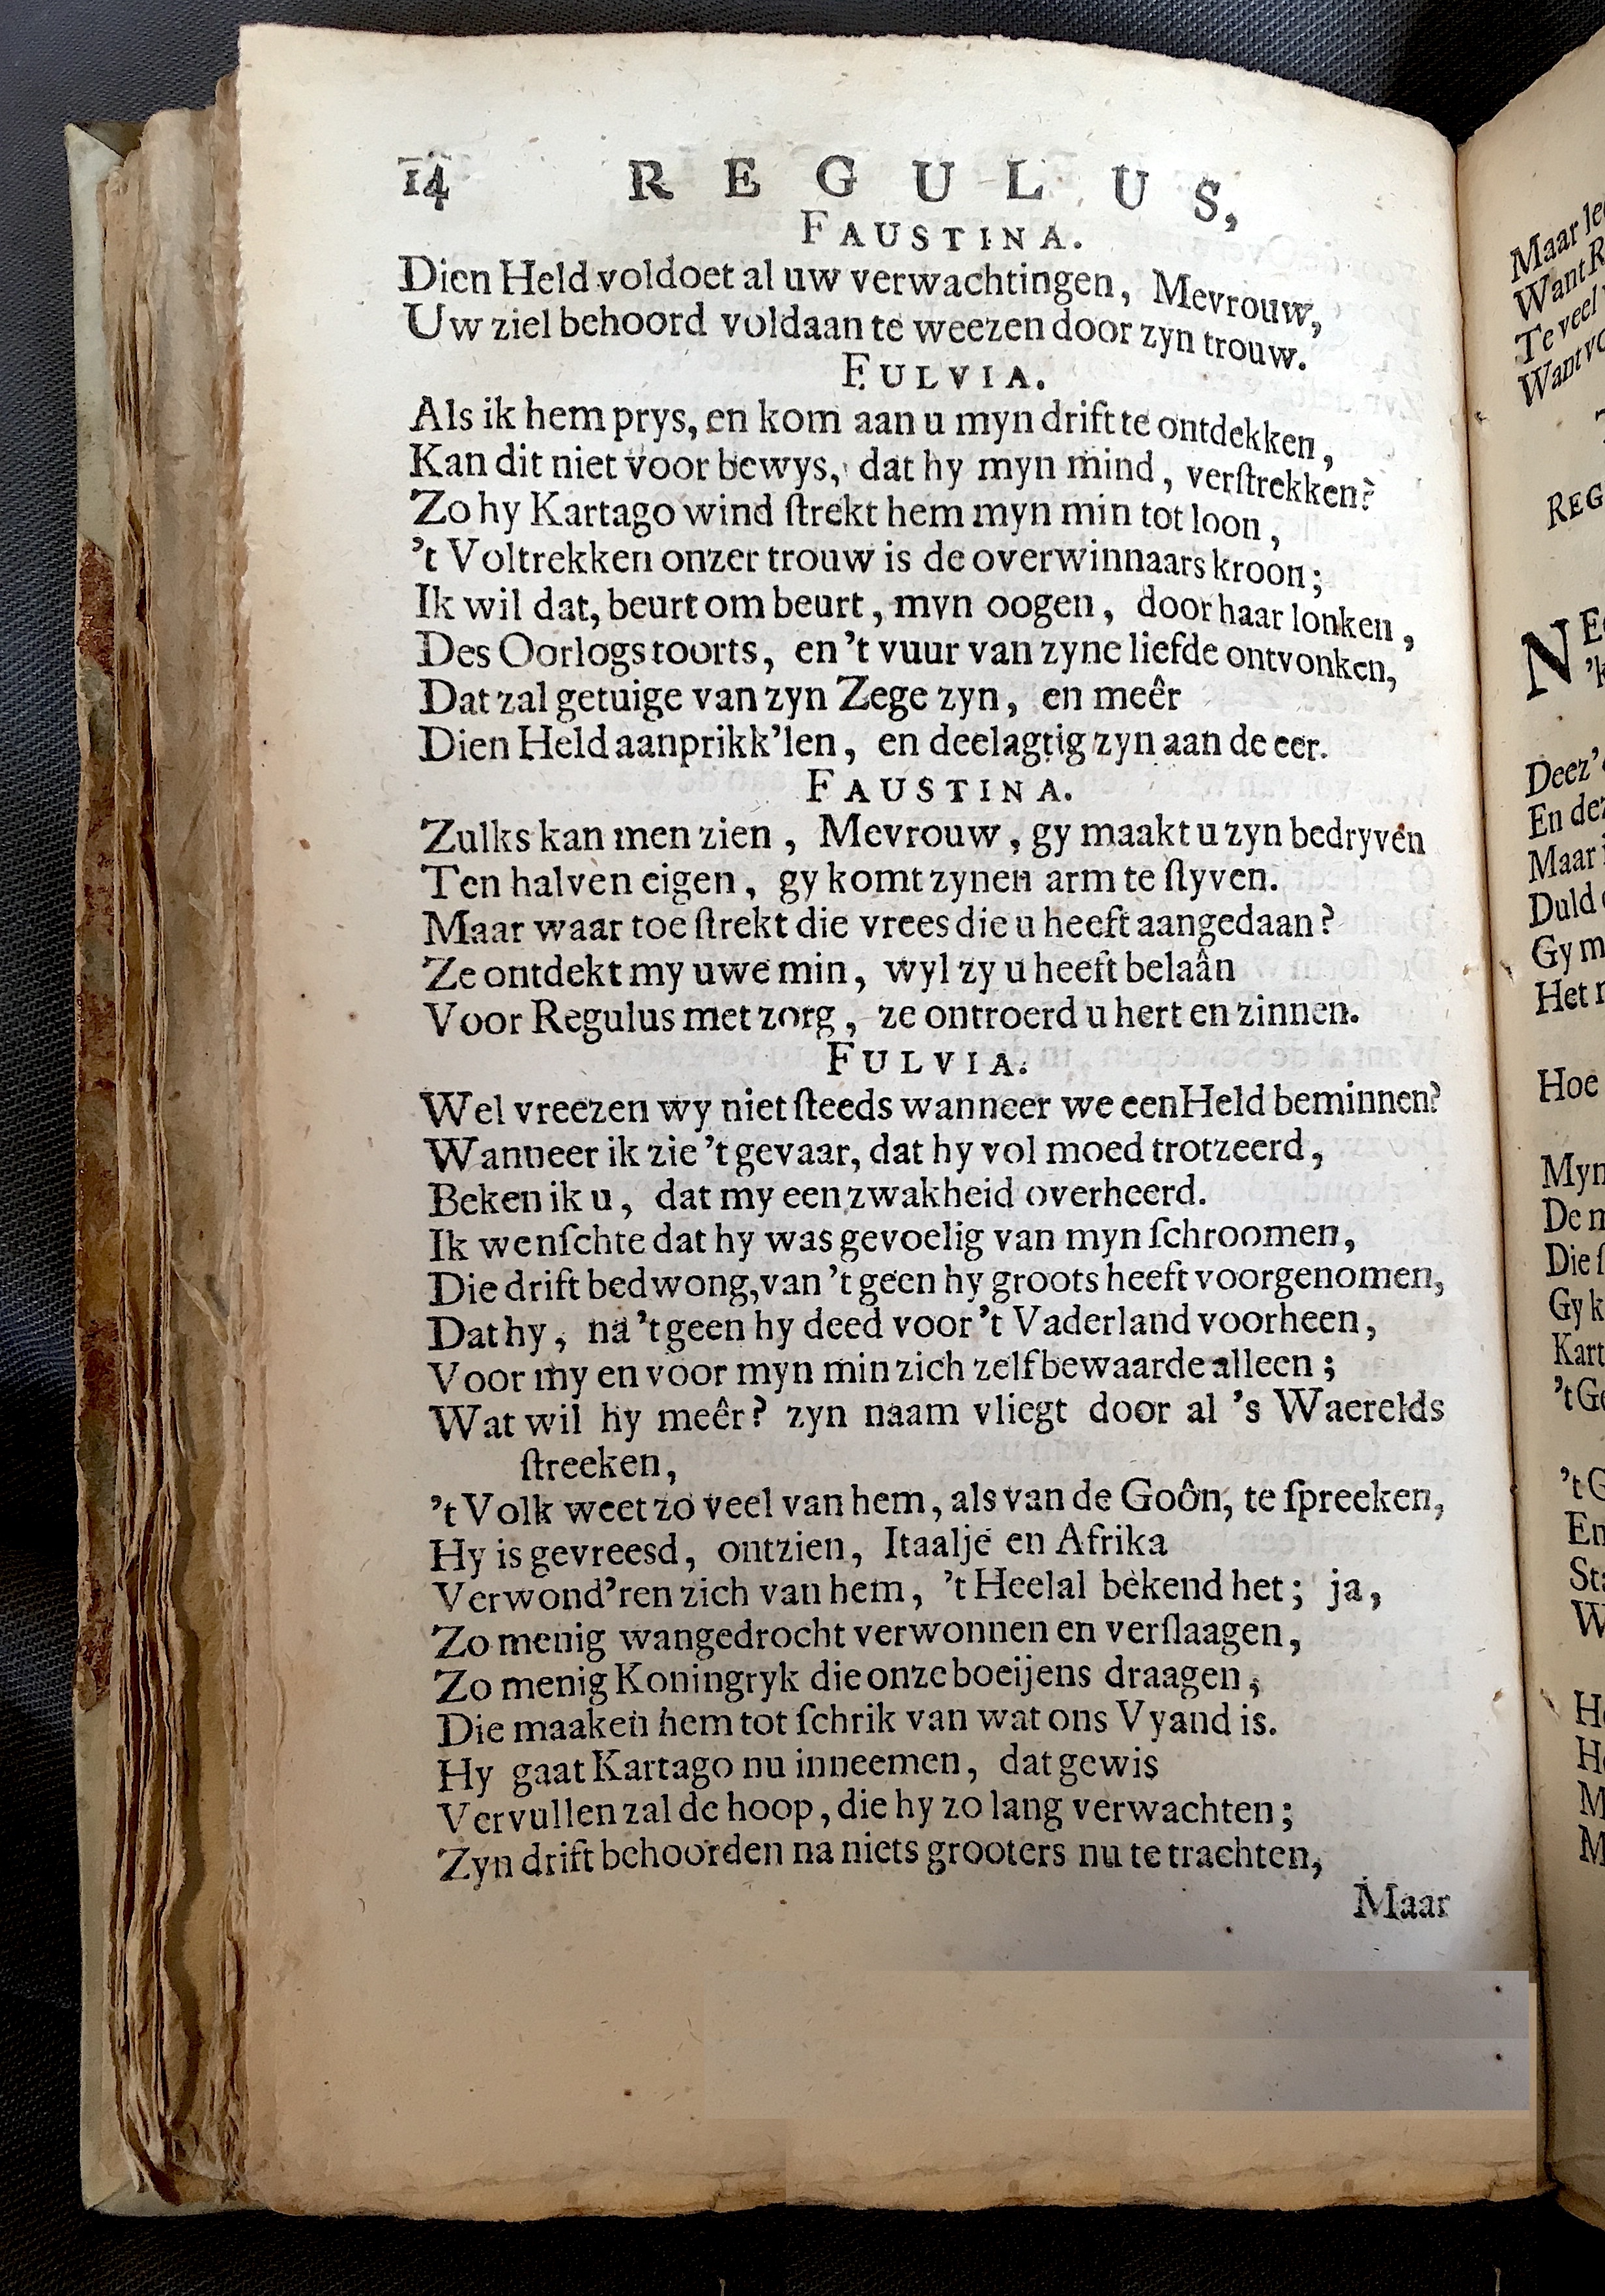 14 REGULUS,
FAUSTINA.
Dien Held voldoet al uw verwachtingen, Mevrouw,
Uw ziel behoord voldaan te weezen door zyn trouw.
FULVIA.
Als ik hem prys, en kom aan u myn drift te ontdekken,
Kan dit niet voor bewys, dat hy myn mind, verſtrekken?
Zo hy Kartago wind ſtrekt hem myn min tot loon,
't Voltrekken onzer trouw is de overwinnaars kroon;
Ik wil dat, beurt om beurt, myn oogen, door haar lonken,
Des Oorlogs toorts, en 't vuur van zyne liefde ontvonken,
Dat zal getuige van zyn Zege zyn, en meêr
Dien Held aanprikk'len, en deelagtig zyn aan de eer.
FAUSTINA.
Zulks kan men zien, Mevrouw, gy maakt u zyn bedryven
Ten halven eigen, gy komt zynen arm te ſtyven.
Maar waar toe ſtrekt die vrees die u heeft aangedaan?
Ze ontdekt my uwe min, wyl zy u heeft belaân
Voor Regulus met zorg, ze ontroerd u hert en zinnen.
FULVIA.
Wel vreezen wy niet ſteeds wanneer we een Held beminnen?
Wanneer ik zie 't gevaar, dat hy vol moed trotzeerd,
Beken ik u, dat my een zwakheid overheerd.
Ik wenſchte dat hy was gevoelig van myn ſchroomen,
Die drift bedwong, van 't geen hy groots heeft voorgenomen,
Dat hy, na 't geen hy deed voor 't Vaderland voorheen,
Voor my en voor myn min zich zelf bewaarde alleen;
Wat wil hy meêr? zyn naam vliegt door al 's Waerelds
ſtreeken,
't Volk weet zo veel van hem, als van de Goôn, te ſpreeken,
Hy is gevreesd, ontzien, Itaalje en Afrika
Verwond'ren zich van hem, 't Heelal bekend het; ja,
Zo menig wangedrocht verwonnen en verſlaagen,
Zo menig Koningryk die onze boeijens draagen,
Die maaken hem tot ſchrik van wat ons Vyand is.
Hy gaat Kartago nu inneemen, dat gewis
Vervullen zal de hoop, die hy zo lang verwachten;
Zyn drift behoorden na niets grooters nu te trachten,
Maar